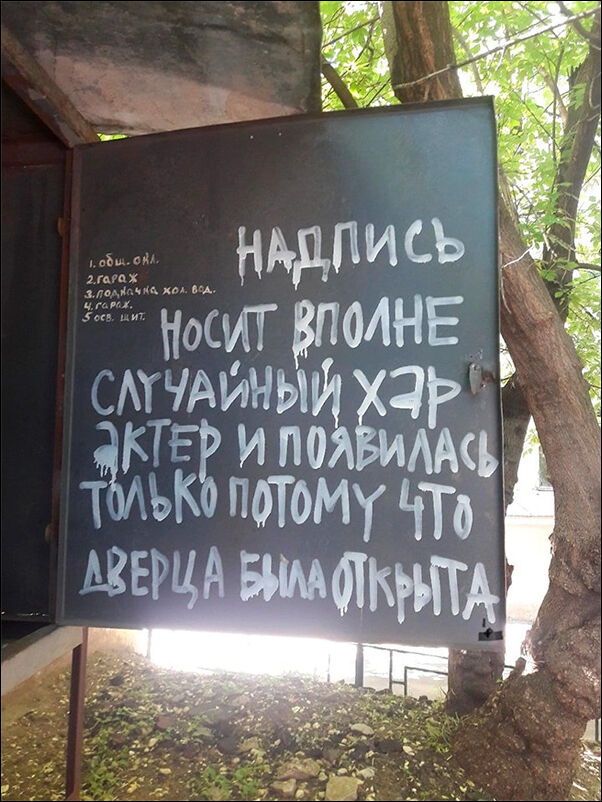 НАДПИСЬ
1. общ. окл.
2. гараж
3. подкачка хол. вод.
4. гараж.
5 осв. щит.
НОСИТ ВПОЛНЕ
СЛУЧАЙНЫЙ ХАР
АКТЕР И ПОЯВИЛАСЬ
ТОЛЬКО ПОТОМУ ЧТО
ДВЕРЦА БЫЛА ОТКРЫТА